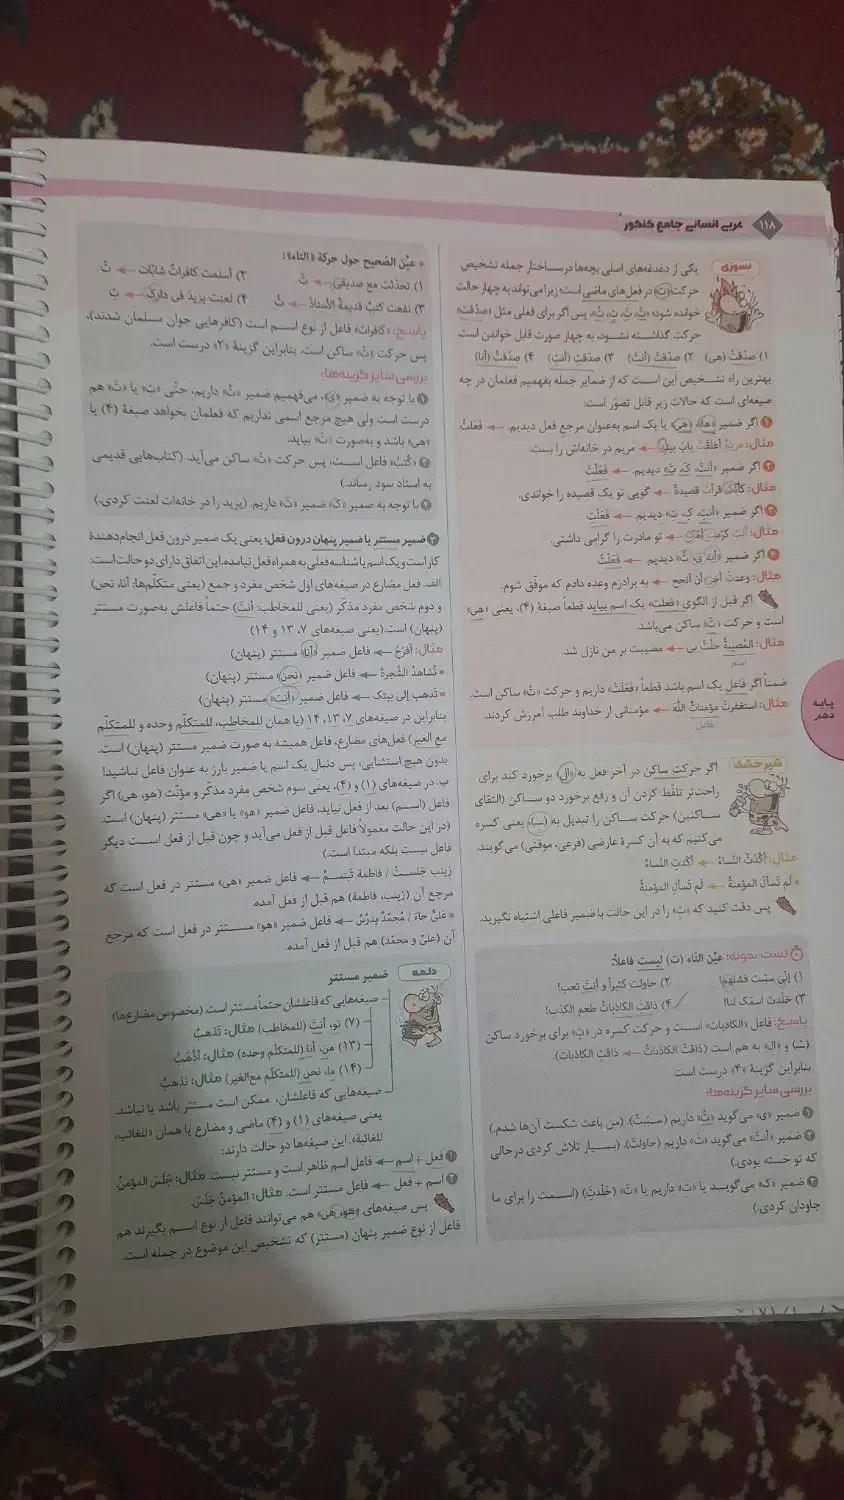 ۱۱۸ عربی انسانی جامع کنکور
نسوزی
یکی از دغدغه‌های اصلی بچه‌ها در ساختار جمله تشخیص
حرکت «ت» در فعل‌های ماضی است؛ زیرا می‌تواند به چهار حالت
خوانده شود؛ «تْ، تَ، تِ، تُ»، پس اگر برای فعلی مثل «صدقت»
حرکت گذاشته نشود، به چهار صورت قابل خواندن است.
۱) صدقَتْ (هی) ۲) صدقْتَ (أنتَ) ۳) صدقتِ (أنتِ) ۴) صدقتُ (أنا)
بهترین راه تشخیص این است که از ضمایر جمله بفهمیم فعلمان در چه
صیغه‌ای است که حالات زیر قابل تصوّر است:
۱ اگر ضمیر «ها، هی» یا یک اسم به‌عنوان مرجع فعل دیدیم. ← فَعَلَتْ
مثال: مریمُ أغلَقَتْ بابَ بیتِها ← مریم در خانه‌اش را بست.
۲ اگر ضمیر «أنتَ، کَ، تَ» دیدیم. ← فَعَلْتَ
مثال: کأنّکَ قرأتَ قصیدةً ← گویی تو یک قصیده را خواندی.
۳ اگر ضمیر «أنتِ، کِ، تِ» دیدیم. ← فَعَلْتِ
مثال: أنتِ کرّمتِ أمّکِ ← تو مادرت را گرامی داشتی.
۴ اگر ضمیر «أنا، ی، تُ» دیدیم. ← فَعَلْتُ
مثال: وعدتُ أخی أن أنجح ← به برادرم وعده دادم که موفّق شوم.
اگر قبل از الگوی «فعلت» یک اسم بیاید قطعاً صیغهٔ (۴)، یعنی «هی»
است و حرکت «تْ» ساکن می‌باشد.
مثال: المُصیبةُ حلّتْ بی ← مصیبت بر من نازل شد.
اسم
ضمناً اگر فاعل یک اسم باشد قطعاً «فَعَلَتْ» داریم و حرکت «تْ» ساکن است.
مثال: استغفرتْ مؤمناتٌ اللّهَ ← مؤمناتی از خداوند طلب آمرزش کردند.
فاعل
شیرخشک
اگر حرکت ساکن در آخر فعل به «ال» برخورد کند برای
راحت‌تر تلفّظ کردن آن و رفع برخورد دو ساکن (التقای
ساکنین) حرکت ساکن را تبدیل به «ـِ» یعنی کسره
می‌کنیم که به آن کسرهٔ عارضی (فرعی، موقتی) می‌گویند.
مثال: أکّدَتْ النّساءُ ← أکّدتِ النّساءُ
• لَم تَسألْ المؤمنةُ ← لَم تَسألِ المؤمنةُ
پس دقت کنید که «تِ» را در این حالت با ضمیر فاعلی اشتباه نگیرید.
تست نمونه: عیّن التّاء (ت) لیست فاعلاً:
۱) إنّی سبّبت فشلهم! ۲) حاولت کثیراً و أنتَ تعب!
۳) خلّدت اسمَک لنا! ۴) ذاقتِ الکاذباتُ طعم الکذب!
پاسخ: فاعل «الکاذبات» است و حرکت کسره در «تِ» برای برخورد ساکن
(ـْ) و «ال» به هم است (ذاقتْ الکاذباتُ ← ذاقتِ الکاذبات).
بنابراین گزینهٔ «۴» درست است.
بررسی سایر گزینه‌ها:
۱ ضمیر «ی» می‌گوید «تُ» داریم (سبّبتُ). (من باعث شکست آن‌ها شدم.)
۲ ضمیر «أنتَ» می‌گوید «تَ» داریم (حاولتَ). (بسیار تلاش کردی درحالی
که تو خسته بودی.)
۳ ضمیر «ک» می‌گوید یا «تِ» داریم یا «تَ» (خلّدتَ) (اسمت را برای ما
جاودان کردی.)
• عیّن الصّحیح حول حرکة «التاء»:
۱) تحدّثت مع صدیقی ← تُ ۲) أسلمت کافراتٌ شابّات ← تْ
۳) نفعت کتبٌ قدیمةٌ الأستاذَ ← تُ ۴) لعنت یزیدَ فی دارکَ ← تِ
پاسخ: «کافرات» فاعل از نوع اسم است (کافرهایی جوان مسلمان شدند)،
پس حرکت «تْ» ساکن است. بنابراین گزینهٔ «۲» درست است.
بررسی سایر گزینه‌ها:
۱ با توجه به ضمیر «ی»، می‌فهمیم ضمیر «تُ» داریم، حتّی «تِ» یا «تَ» هم
درست است ولی هیچ مرجع اسمی نداریم که فعلمان بخواهد صیغهٔ (۴) یا
«هی» باشد و به‌صورت «تْ» بیاید.
۳ «کُتبٌ» فاعل است، پس حرکت «تْ» ساکن می‌آید. (کتاب‌هایی قدیمی
به استاد سود رساند.)
۴ با توجه به ضمیر «کَ» ضمیر «تَ» داریم. (یزید را در خانه‌ات لعنت کردی.)
۳ ضمیر مستتر یا ضمیر پنهان درون فعل: یعنی یک ضمیر درون فعل انجام‌دهندهٔ
کار است و یک اسم یا شناسه فعلی به همراه فعل نیامده، این اتفاق دارای دو حالت است:
الف. فعل مضارع در صیغه‌های اول شخص مفرد و جمع (یعنی متکلّم‌ها: أنا، نحن)
و دوم شخص مفرد مذکّر (یعنی للمخاطب: أنتَ) حتماً فاعلش به‌صورت مستتر
(پنهان) است. (یعنی صیغه‌های ۷، ۱۳ و ۱۴)
مثال: أفرَحُ ← فاعل ضمیر «أنا» مستتر (پنهان)
• نُشاهدُ الشَّجرةَ ← فاعل ضمیر «نحن» مستتر (پنهان)
• تَذهب إلی بیتک ← فاعل ضمیر «أنت» مستتر (پنهان)
بنابراین در صیغه‌های ۷، ۱۳، ۱۴ (یا همان للمخاطب، للمتکلّم وحده و للمتکلّم
مع الغیر) فعل‌های مضارع، فاعل همیشه به صورت ضمیر مستتر (پنهان) است.
بدون هیچ استثنایی، پس دنبال یک اسم یا ضمیر بارز به عنوان فاعل نباشید!
ب. در صیغه‌های (۱) و (۴)، یعنی سوم شخص مفرد مذکّر و مؤنّث (هو، هی) اگر
فاعل (اسم) بعد از فعل نیاید، فاعل ضمیر «هو» یا «هی» مستتر (پنهان) است.
(در این حالت معمولاً فاعل قبل از فعل می‌آید و چون قبل از فعل است دیگر
فاعل نیست بلکه مبتدا است.)
زینب جَلستْ / فاطمة تَبتسمُ ← فاعل ضمیر «هی» مستتر در فعل است که
مرجع آن (زینب، فاطمة) هم قبل از فعل آمده.
• عَلیٌّ جاءَ / مُحمّدٌ یدرُسُ ← فاعل ضمیر «هو» مستتر در فعل است که مرجع
آن (علیّ و محمّد) هم قبل از فعل آمده.
دلمه ضمیر مستتر
صیغه‌هایی که فاعلشان حتماً مستتر است. (مخصوص مضارع‌ها)
(۷) تو، أنتَ (للمخاطب) مثال: تَذهبُ
(۱۳) من، أنا (للمتکلّم وحده) مثال: أذْهَبُ
(۱۴) ما، نحن (للمتکلّم مع‌الغیر) مثال: نذهبُ
صیغه‌هایی که فاعلشان، ممکن است مستتر باشد یا نباشد.
یعنی صیغه‌های (۱) و (۴) ماضی و مضارع یا همان «للغائب،
للغائبة». این صیغه‌ها دو حالت دارند:
۱ فعل + اسم ← فاعل اسم ظاهر است و مستتر نیست. مثال: جَلَسَ المؤمنُ.
۲ اسم + فعل ← فاعل مستتر است. مثال: المؤمنُ جَلَسَ.
پس صیغه‌های «هو، هی» هم می‌توانند فاعل از نوع اسم بگیرند هم
فاعل از نوع ضمیر پنهان (مستتر) که تشخیص این موضوع در جمله است.
پایه
دهم